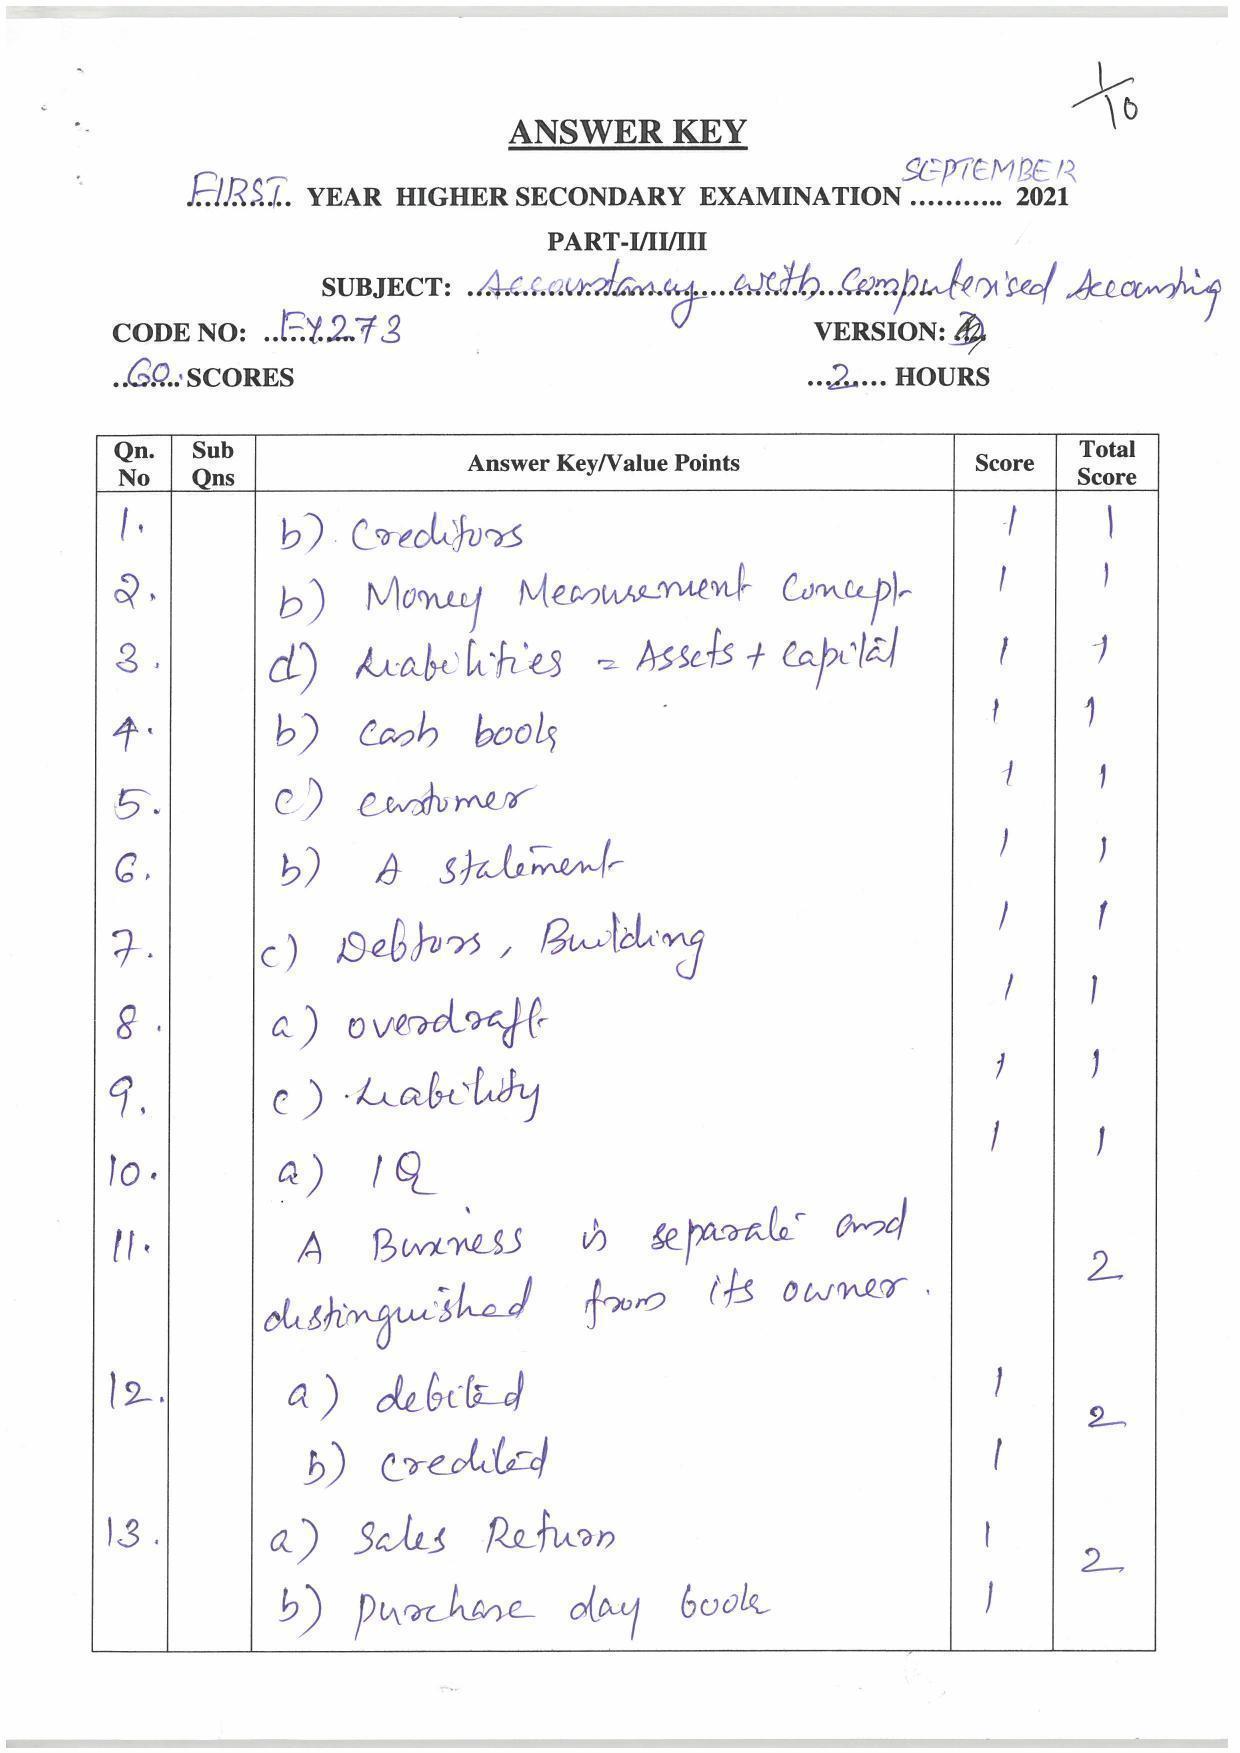 1/10
ANSWER KEY
SEPTEMBER
FIRST YEAR HIGHER SECONDARY EXAMINATION ........... 2021
PART-I/II/III
SUBJECT: Accountancy with Computerised Accounting
CODE NO: FY273 VERSION:
60 SCORES 2 HOURS
Qn. No Sub Qns Answer Key/Value Points Score Total Score
1. b) Creditors 1 1
2. b) Money Measurement Concept 1 1
3. d) Liabilities = Assets + Capital 1 1
4. b) Cash book 1 1
5. c) customer 1 1
6. b) A statement 1 1
7. c) Debtors, Building 1 1
8. a) overdraft 1 1
9. c) Liability 1 1
10. a) IQ 1 1
11. A Business is separate and
distinguished from its owner. 2
12. a) debited 1 2
b) credited 1
13. a) Sales Return 1 2
b) purchase day book 1